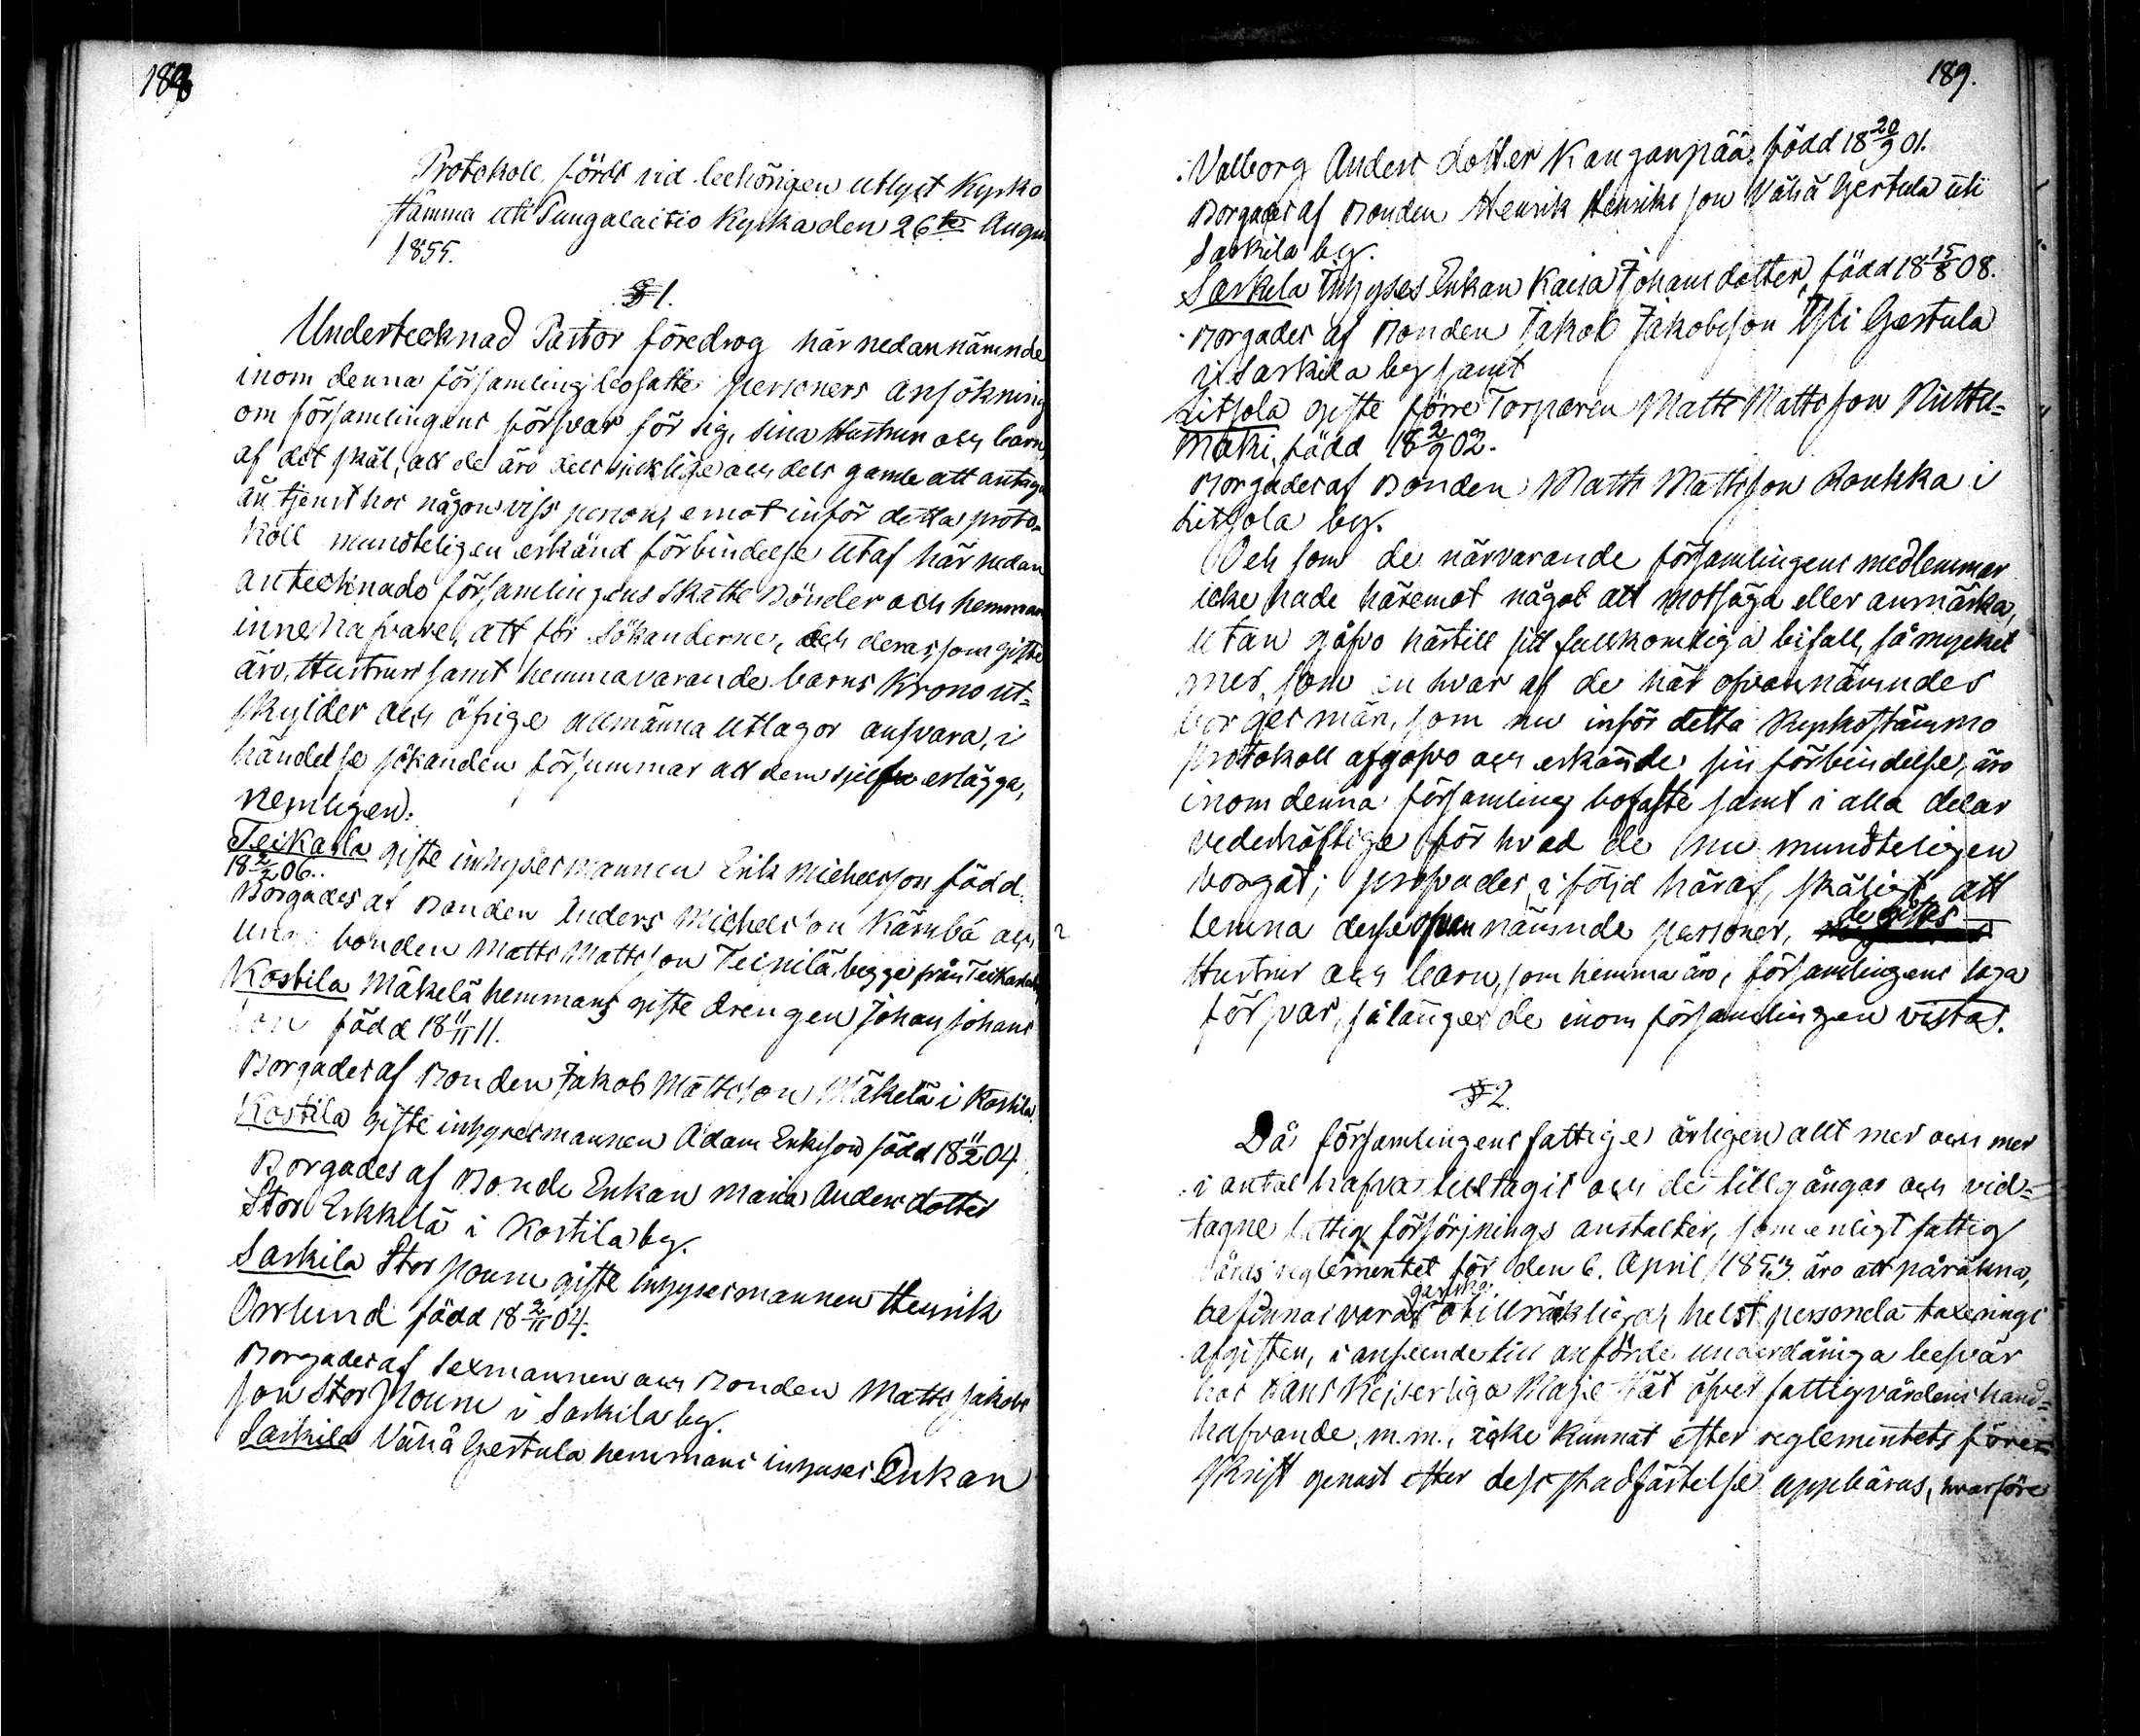 188
Protokoll, fördt vid behörigen utlyst Kyrko
stämma uti Pungalaitio Kyrka den 26te Augu
1855.
§ 1.
Undertecknad Pastor föredrog här nedannämnde
inom denna församling bosatte personers ansökning
om församlingens försvar för sig, sina Hustrur och barn,
af det skäl, att de äro dels sjeklige och dels gamle att antaga
än tjenst hos någon viss person, emot inför detta proto-
koll mundteligen erkänd förbindelse utaf här nedan
antecknade församlingens Skatte Bönder och hemmans
innehafvare, att för sökanderne, och deras, som gifte
äro, Hustrur samt hemmavarande barns Krono ut-
skylder och öfrige allmänna utlagor ansvara, i
händelse sökanden försummar att dem sjelfve erlägga,
nemligen:
Teikarla gifte inhysesmannen Erik Michelsson född
18 2/2 06.
Borgades af Bonden Anders Michelsson Kärnbä och
unga bonden Matts Mattsson Teinilä, begge från Teikarla
Kostila Mäkelä hemmans gifte drengen Johan Johans
son född 18 11/11 11.
Borgades af Bonden Jakob Mattsson Mäkelä i Kostila
Kostila gifte inhysesmannen Adam Eriksson född 18 11/2 04
Borgades af Bonde Enkan Maria Anders dotter
Stor Erkkilä i Kostila by.
Sarkila Stor Jouni gifte inhysesmannen Henrik
Orrlund född 18 2/11 04.
Borgades af Sexmannen och Bonden Matts Jakobs
son Stor Jouni i Sarkila by.
Sarkila Vähä Gertula hemmans inhyses Enkan
189.
Valborg Anders dotter Kanganpää, född 18 20/9 01.
Borgades af Bonden Henrik Henriks son Vähä Gertula uti
Sarkila by.
Sarkila Inhyses Enkan Kaisa Johansdotter, född 18 15/8 08.
Borgades af Bonden Jakob Jakobsson Ylli Gertula
i Sarkila by samt
Litsola gifte förre Torparen Matts Mattsson Riittu-
mäki, född 18 2/9 02.
Borgades af Bonden Matts Mattsson Roukka i
Litsola by.
Och som de närvarande församlingens medlemmar
icke hade häremot något att motsäga eller anmärka,
utan gåfvo härtill sitt fullkomliga bifall, så mycket
mer, som en hvar af de här ofvannämndes
borgesmän, som nu inför detta Kyrkostämmo
protokoll afgofvo och erkände sin förbindelse, äro
inom denna församling bofaste samt i alla delar
vederhäftige för hvad de nu mundteligen
borgat; profvades i följd häraf, skäligt att
de giftes
lemna desse ofvannämnde personer,
Hustrur och barn, som hemma äro, församlingens laga
försvar, så länge de inom församlingen vistas.
§ 2.
Då församlingens fattige årligen allt mer och mer
i antal hafva tilltagit och de tillgångar och vid-
tagne fattig försörjnings anstalter, som enligt fattig
vårds reglementet för den 6. April 1853 äro att påräkna,
ganska
befinnas vara otillräklige, helst personela taxerings
afgiften, i anseende till anförde underdåniga besvär
hos Hans Kejserliga Majestät öfver fattigvårdens hand-
hafvande, m. m., icke kunnat efter reglementets före-
skrift genast efter dess stadfästelse uppbäras, hvarföre